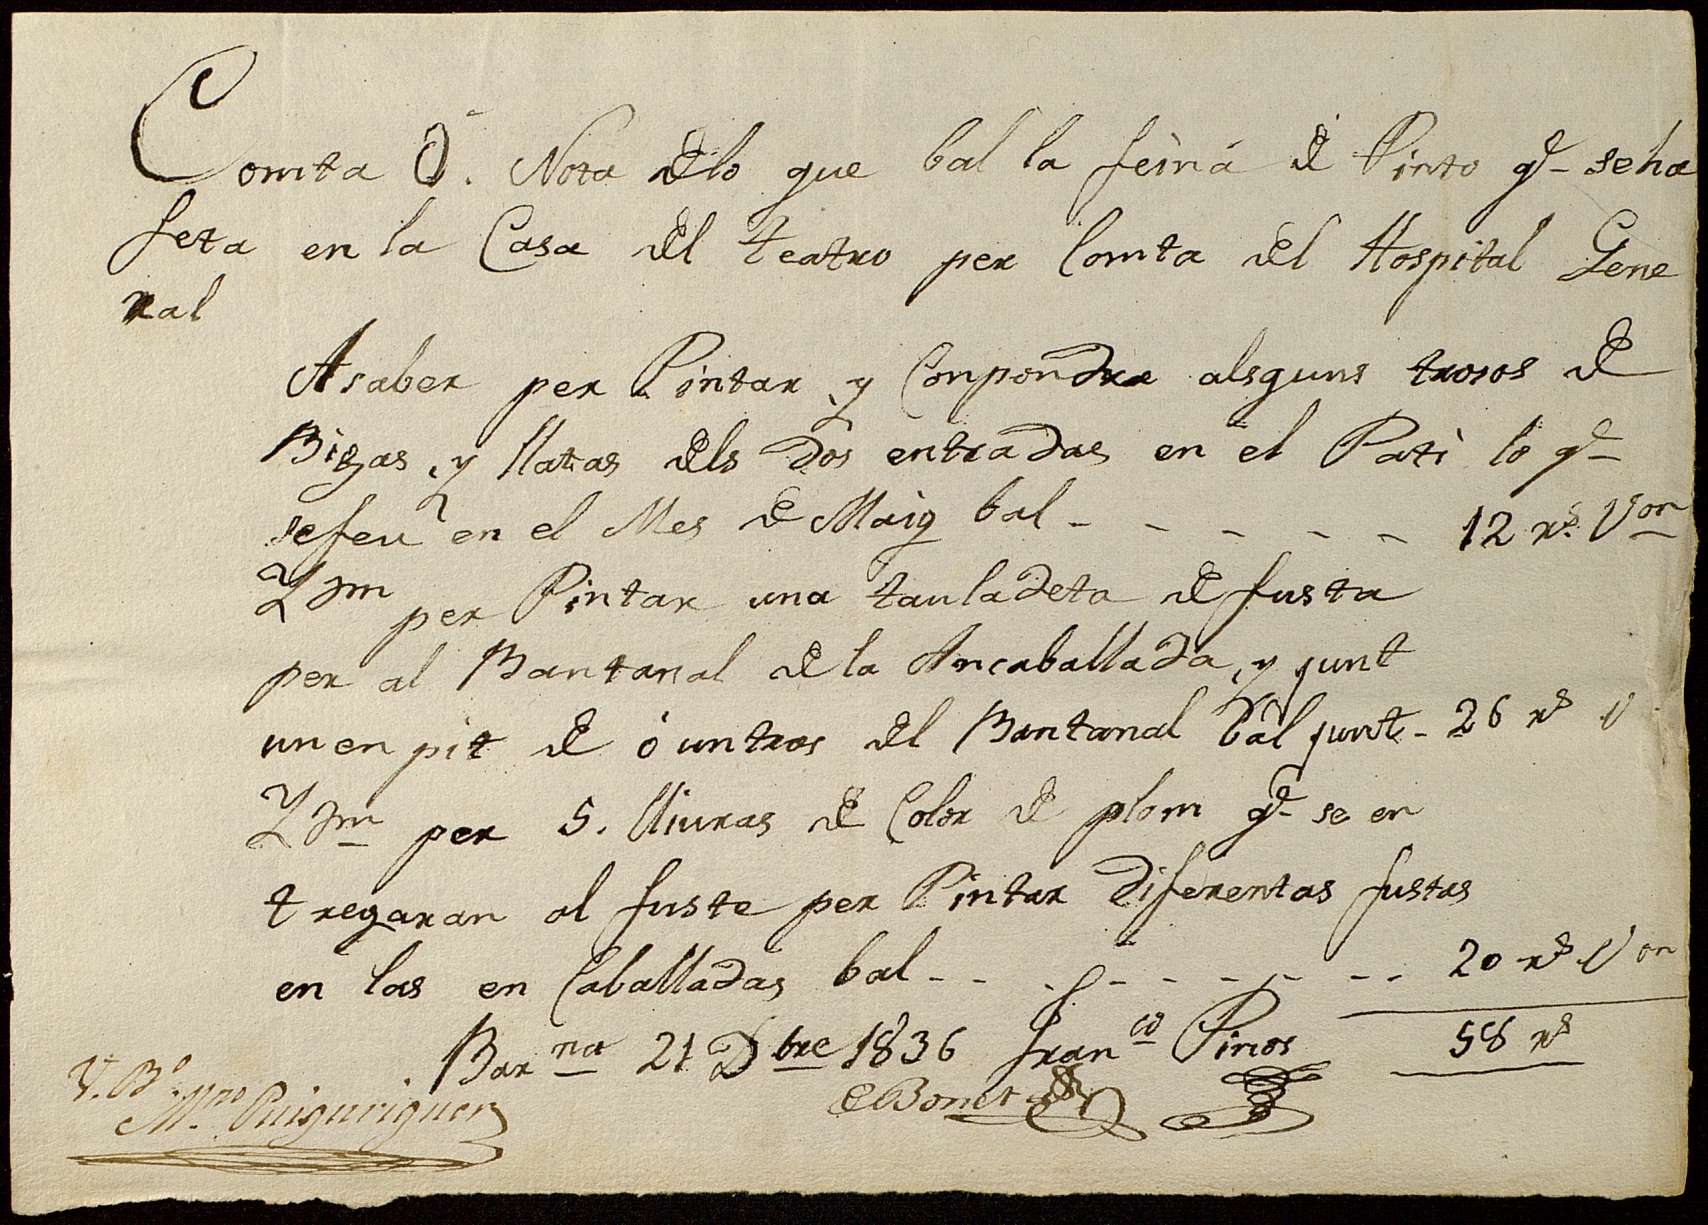 Comta ó. Nota delo que bal la feina de Pinto qe se ha
feta en la Casa del teatro per Comta del Hospital Gene
ral
Asaber per Pintar, y Conpondre alsguns trosos de
Bigas, y llatas dels dos entradas en el Pati lo qe
sefeu en el Mes de Maig bal - - - - - 12 rs. Von
Ytm per Pintar una tauladeta de fusta
per al Bantanal de la Ancaballada, y junt
un enpit de ó untros del Bantanal bal junt - 26 rs V
Ytm per 5. lliuras de Color de plom qe se en
tregaran al fuste per Pintar diferentas fustas
en las en Caballadas bal - - - - - - - - - 20 rs Von
Barna 21 Dbre 1836 Franco Pinos 58 rs
V. Bo
eBonet
Puiguriguer